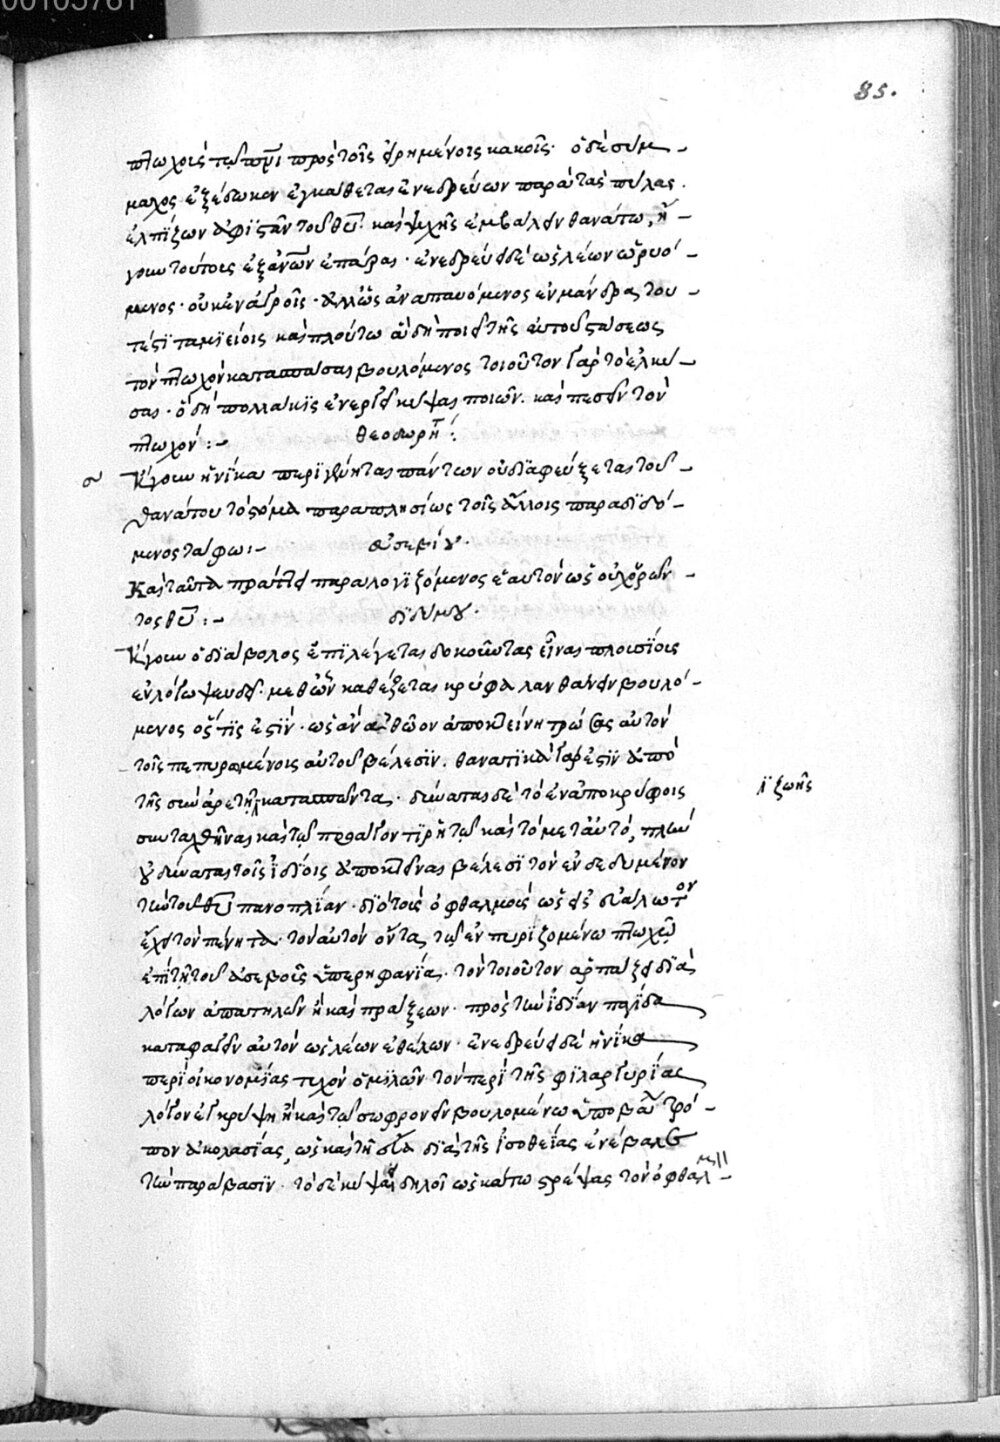 85.
πτωχοὺς τῶ ποιεῖ πρὸς τοῖς εἰρημένοις κακοῖς· ὁ δὲ σύμ
μαχος ἐξέδωκεν ἐγκαθεται ἐνεδρεύων παρὰ τὰς πύλας.
ἐλπίζων ἀφιστᾶν τοῦ θυ καὶ ψυχῆς ἐμβαλεῖν θανάτω, ἢ
γουν τούτοις ἐξ ἀνων ἐπάρας· ἐνεδρεύει δὲ ὡς λέων ὠρυό
μενος· οὐκ ἐν ἀγροῖς· ἀλλ' ὡς ἀναπαυόμενος ἐν μάνδρα του
τέστι ταμιείοις καὶ πλούτω
τὸν πτωχὸν καταπαῦσαι βουλόμενος τοιοῦτον γὰρ τὸ ἑλκύ
σαι· ὃ δὴ πολλάκις ἐνεργεῖ κύψας ποιῶν· καὶ πεσεῖν τὸν
πτωχόν:
θεοδωρητ:
Κύψει ἡνίκα περιγένηται πάντων οὐ διαφεύξεται τοῦ
θανάτου τὸ σόμα παραπλησίως τοῖς ἄλλοις παραδιδό
μενος ταφω:
εὐσεβίου.
Καὶ ταῦτα πράττει παραλογιζόμενος ἑαυτὸν ὡς οὐχ ὁρῶν
τος θυ:
διδύμου.
Κύψει ὁ διάβολος ἐπιλέγεται δοκοῦντας εἶναι πλουσίοις
ἐν λόγω ψευδεῖ· μεθ' ὧν καθέζεται κρύφα λανθάνειν βουλό
μενος ὅστις ἐστίν· ὡς ἂν ἀθῶον ἀποκτείνη τρώσας αὐτὸν
τοῖς πεπυρωμένοις αὐτοῦ βέλεσιν· θανατικὰ γάρ ἐστιν ἀπὸ
τῆς σὺν ἀρετῆ καταπαύοντα· δύναται δὲ τὸ ἐν ἀποκρύφοις
ϊ ζωῆς
συνταχθῆναι καὶ τῶ προάγοντι ῥητῶ καὶ τὸ μετ' αὐτό, πλὴν
οὐ δύναται τοῖς ἰδίοις ἀποκτεῖναι βέλεσι τὸν ἐνδεδυμένον
τὴν τοῦ θυ πανοπλίαν· διὸ τοὺς ὀφθαλμοὺς ὡς εἰς εὐάλωτον
ἔχει τὸν πένητα· τὸν αὐτὸν ὄντα τῶ ἐνπυριζομένω πτωχῶ
ἐπὶ τῆ τοῦ ἀσεβοῦς ὑπερηφανία· τὸν τοιοῦτον ἁρπάξει διὰ
λόγων ἀπατηλῶν ἢ καὶ πράξεων· πρὸς τὴν ἰδίαν παγίδα
καταφαγεῖν αὐτὸν ὡς λέων ἐθέλων· ἐνεδρεύει δὲ ἡνίκα
περὶ οἰκονομίας τυχὸν ὁμιλῶν τὸν περὶ τῆς φιλαργυρίας
λόγον ἐγκρύψη ἢ καὶ τῶ σωφρονεῖν βουλομένω ὑποβάλη τρό
πον ἀκολασίας, ὡς καὶ τῆ εὔα διὰ τῆς ἰσοθείας ἐνέβαλε
τὴν παράβασιν· τὸ δὲ κύψει δηλοῖ ὡς κάτω στρέψας τὸν ὀφθαλμ